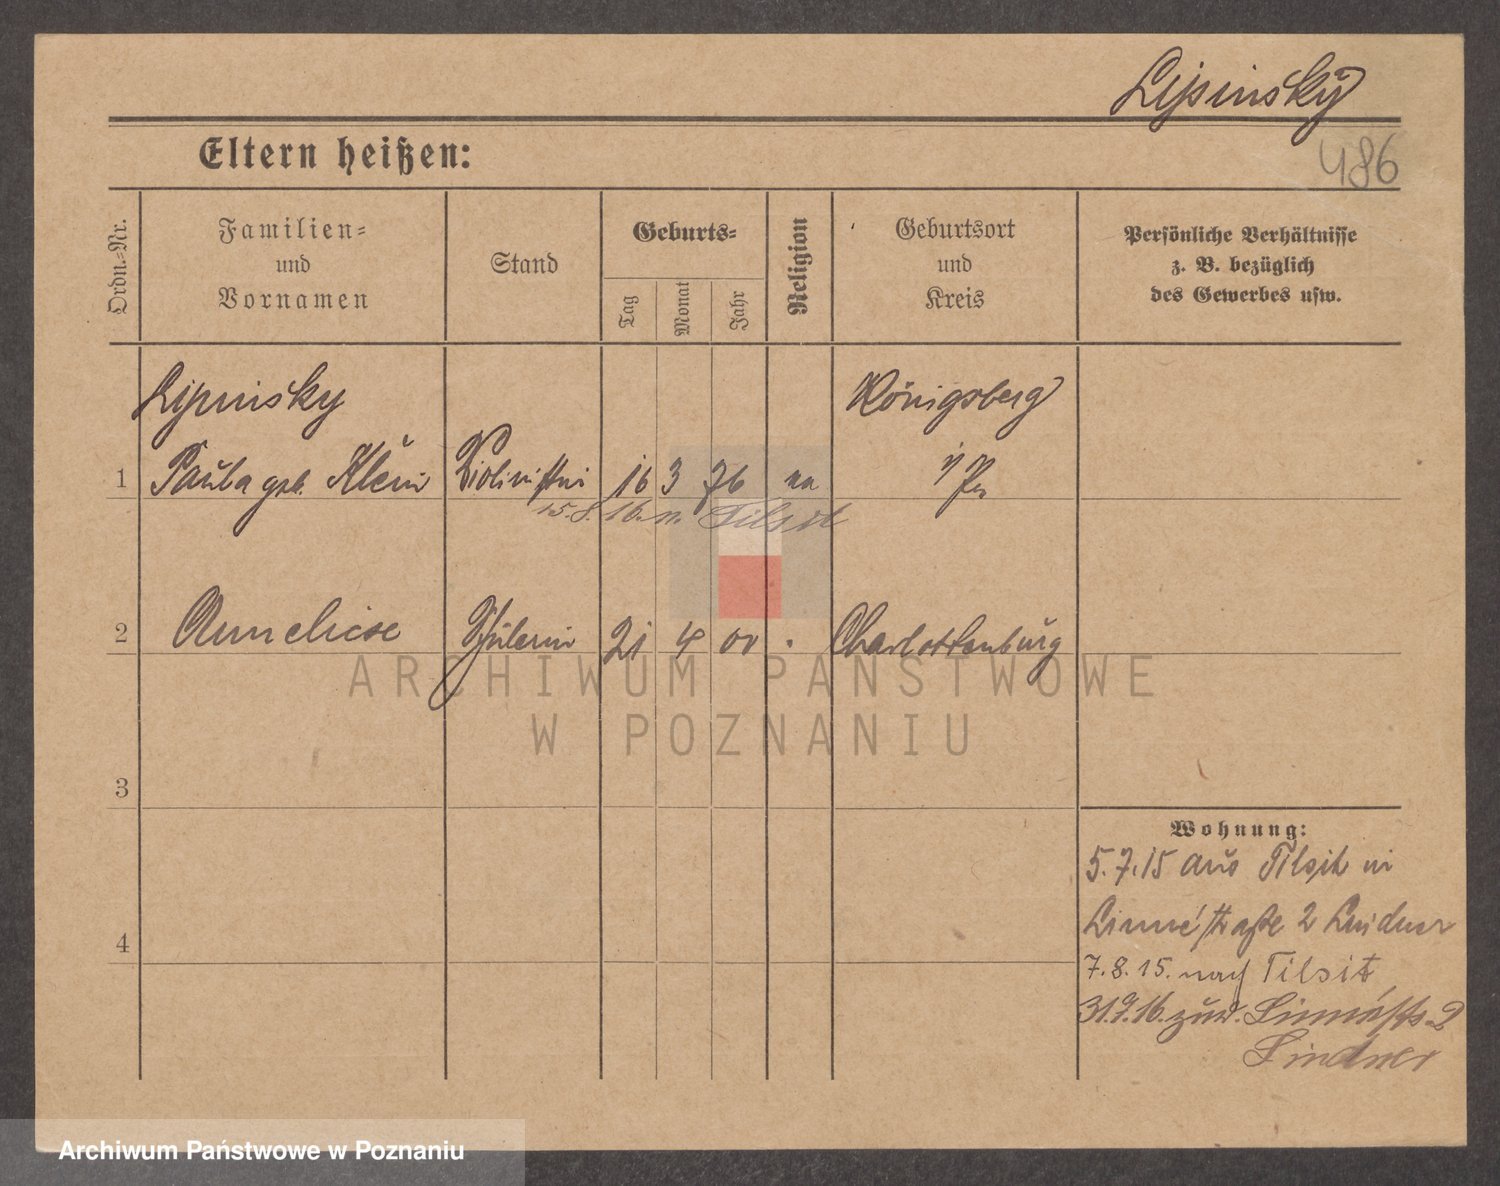 Lipinsky
486
Eltern heißen:
Ordn.-Nr.
Familien-
und
Vornamen
Stand
Geburts-
Tag
Monat
Jahr
Religion
Geburtsort
und
Kreis
Persönliche Verhältnisse
z. B. bezüglich
des Gewerbes usw.
Lipinsky
Königsberg
1 Paula geb. Klein Violinistin 16 3 76 i/Pr
15.8.16. n. Tilsit
2 Anneliese Schülerin 21 4 00 Charlottenburg
ARCHIWUM PAŃSTWOWE
W POZNANIU
3
Wohnung:
5.7.15 aus Tilsit in
Linnéstraße 2 Lindner
4
7.8.15. nach Tilsit
zur. Linnéstr. 2
Lindner
Archiwum Państwowe w Poznaniu